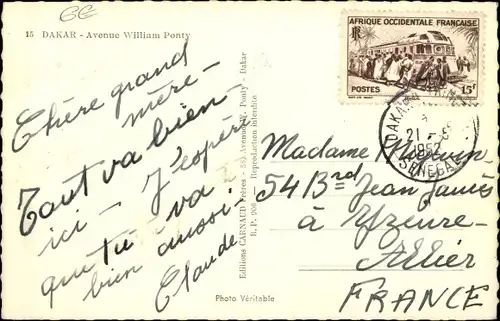 15 DAKAR - Avenue William Ponty
Chère grand
mère -
Tout va bien
ici - J'espère
que tu va
bien aussi -
Claude
Editions CARNAUD Frères - Avenue W. Ponty - Dakar
R. P. Reproduction interdite
Photo Véritable
AFRIQUE OCCIDENTALE FRANÇAISE
RF
POSTES 15F
DAKAR
21 - 8
1952
SENEGAL
Madame
54 Bd Jean Jaurès
à Yzeure -
Allier
FRANCE